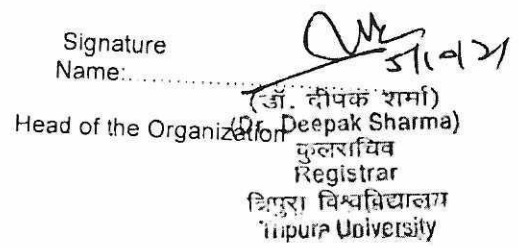 Signature
Name:....................
(डॉ. दीपक शर्मा)
Head of the Organization (Dr. Deepak Sharma)
कुलसचिव
Registrar
त्रिपुरा विश्वविद्यालय
Tripura University